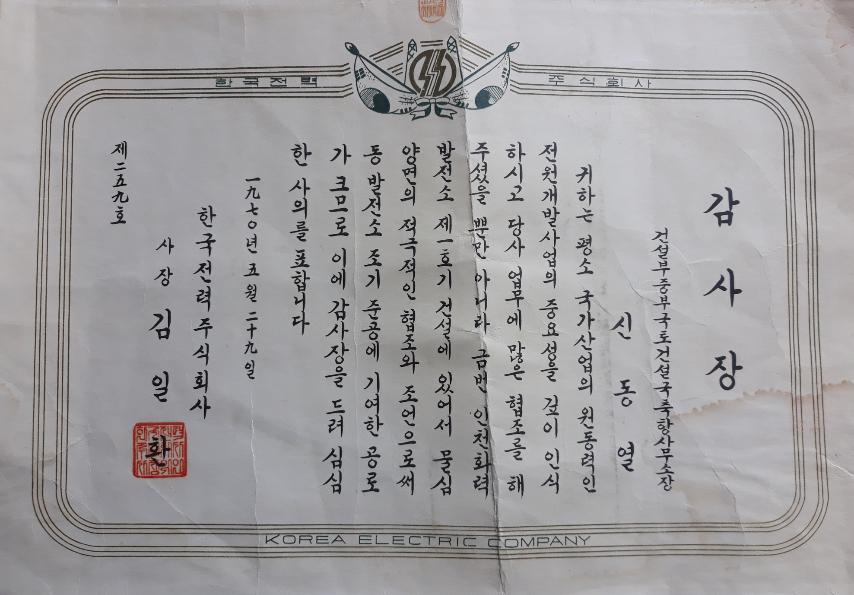 한국전력 주식회사
감사장
건설부중부국토건설국축항사무소장
신동열
귀하는 평소 국가산업의 원동력인
전원개발사업의 중요성을 깊이 인식
하시고 당사 업무에 많은 협조를 해
주셨을 뿐만 아니라 금번 인천화력
발전소 제一호기 건설에 있어서 물심
양면의 적극적인 협조와 조언으로써
동 발전소 조기 준공에 기여한 공로
가 크므로 이에 감사장을 드려 심심
한 사의를 표합니다
一九七○년 五월 二十九일
한국전력주식회사
사장 김일환
제二五九호
KOREA ELECTRIC COMPANY